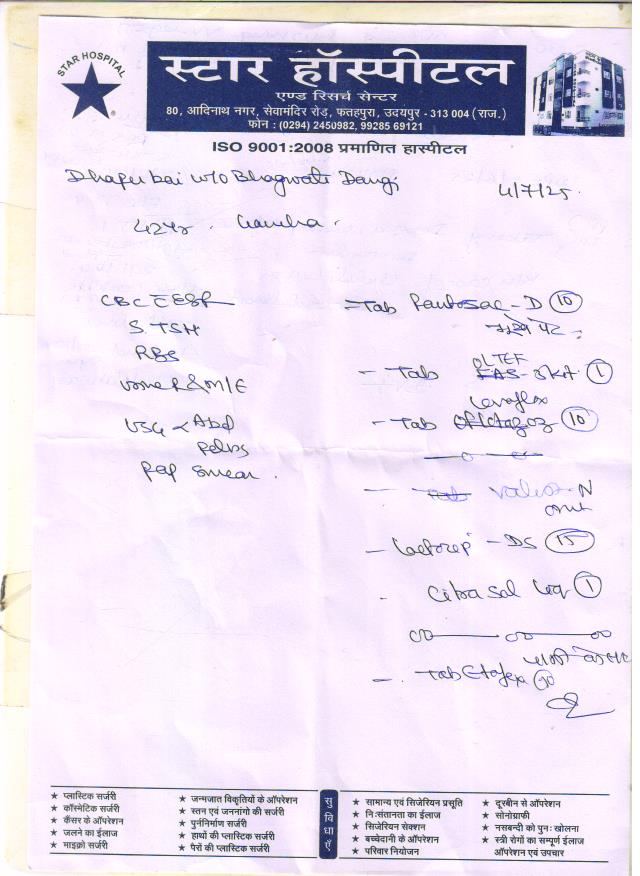 STAR HOSPITAL
स्टार हॉस्पीटल
एण्ड रिसर्च सेन्टर
80, आदिनाथ नगर, सेवामंदिर रोड, फतहपुरा, उदयपुर - 313 004 (राज.)
फोन : (0294) 2450982, 99285 69121
ISO 9001:2008 प्रमाणित हास्पीटल
Dhapubai w/o Bhagwati Dangi
4/7/25.
42yr.
CBC c ESR
S. TSH
RBS
Urine R & M/E
USG < Abd
Pelvis
Pap smear.
- Tab Pantosac - D 10
भूखे पेट
- Tab 1
- Tab Levoflox 10
- N
- DS 15
Citrasol 1
- Tab 10
★ प्लास्टिक सर्जरी
★ कॉस्मेटिक सर्जरी
★ कैंसर के ऑपरेशन
★ जलने का ईलाज
★ माइक्रो सर्जरी
★ जन्मजात विकृतियों के ऑपरेशन
★ स्तन एवं जननांगो की सर्जरी
★ पुर्ननिर्माण सर्जरी
★ हाथों की प्लास्टिक सर्जरी
★ पैरों की प्लास्टिक सर्जरी
सुविधाएँ
★ सामान्य एवं सिजेरियन प्रसूति
★ निःसंतानता का ईलाज
★ सिजेरियन सेक्शन
★ बच्चेदानी के ऑपरेशन
★ परिवार नियोजन
★ दूरबीन से ऑपरेशन
★ सोनोग्राफी
★ नसबन्दी को पुनः खोलना
★ स्त्री रोगों का सम्पूर्ण ईलाज
ऑपरेशन एवं उपचार